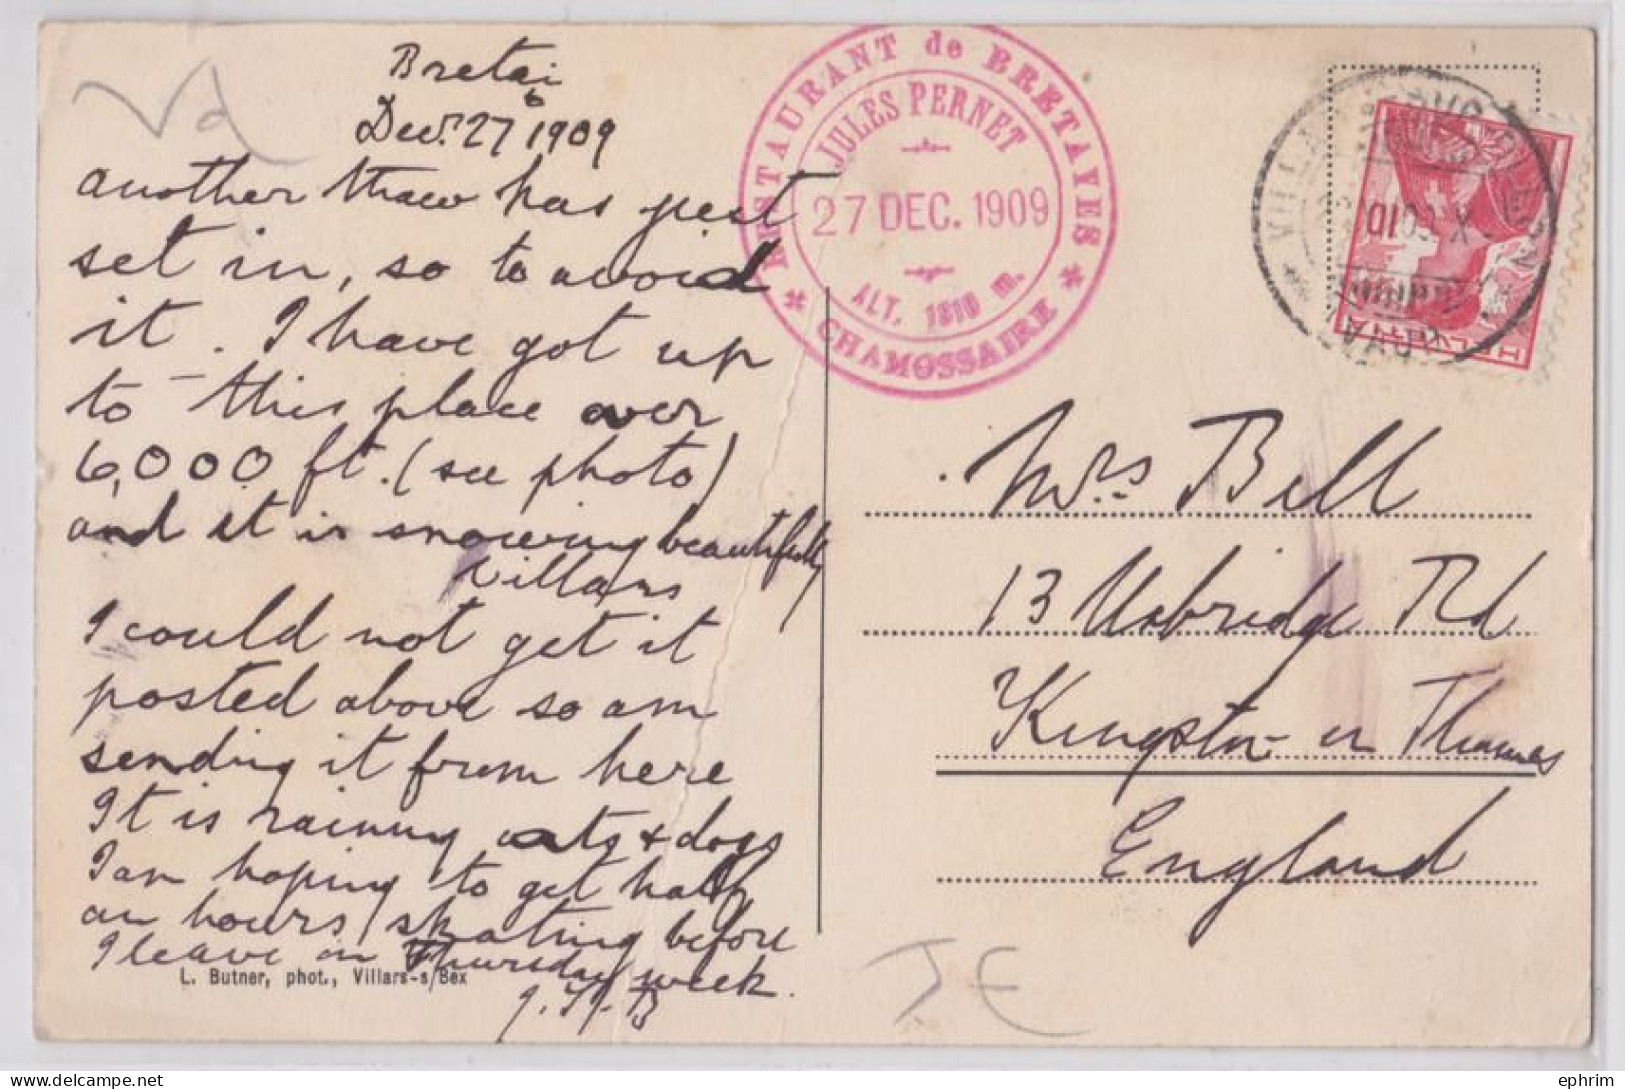 Bretai
Decr. 27 1909
another thaw has just
set in, so to avoid
it. I have got up
to this place over
6,000 ft. (see photo)
and it is snowing beautifully
Villars
I could not get it
posted above so am
sending it from here
It is raining cats & dogs
I am hoping to get half
an hours skating before
I leave on Thursday week.
J. H. B
L. Butner, phot., Villars-s/Bex
RESTAURANT de BRETAYES
JULES PERNET
27 DEC. 1909
ALT. 1810 m.
* CHAMOSSAIRE *
10
HELVETIA
Mrs Bell
13 Uxbridge Rd
Kingston on Thames
England